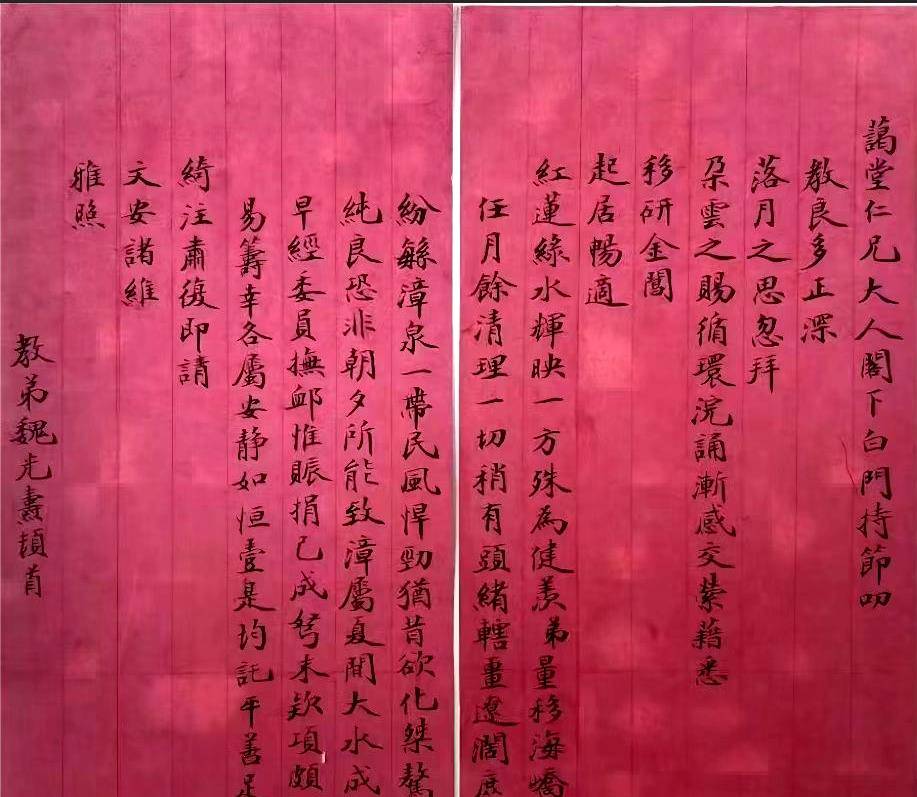 藹堂仁兄大人閣下白門持節叨
教良多正深
落月之思忽拜
朶雲之賜循環浣誦漸感交縈藉悉
移研金閶
起居暢適
紅蓮綠水輝映一方殊為健羨弟量移海嶠
任月餘清理一切稍有頭緒轄畺遼濶庶
紛緐漳泉一帶民風悍勁猶昔欲化桀驁
純良恐非朝夕所能致漳屬夏間大水成
早經委員撫卹惟賑捐已成弩末欵項頗
易籌幸各屬安静如恒壹是均託平善足
綺注肅復即請
文安諸維
雅照
教弟魏光燾頓首